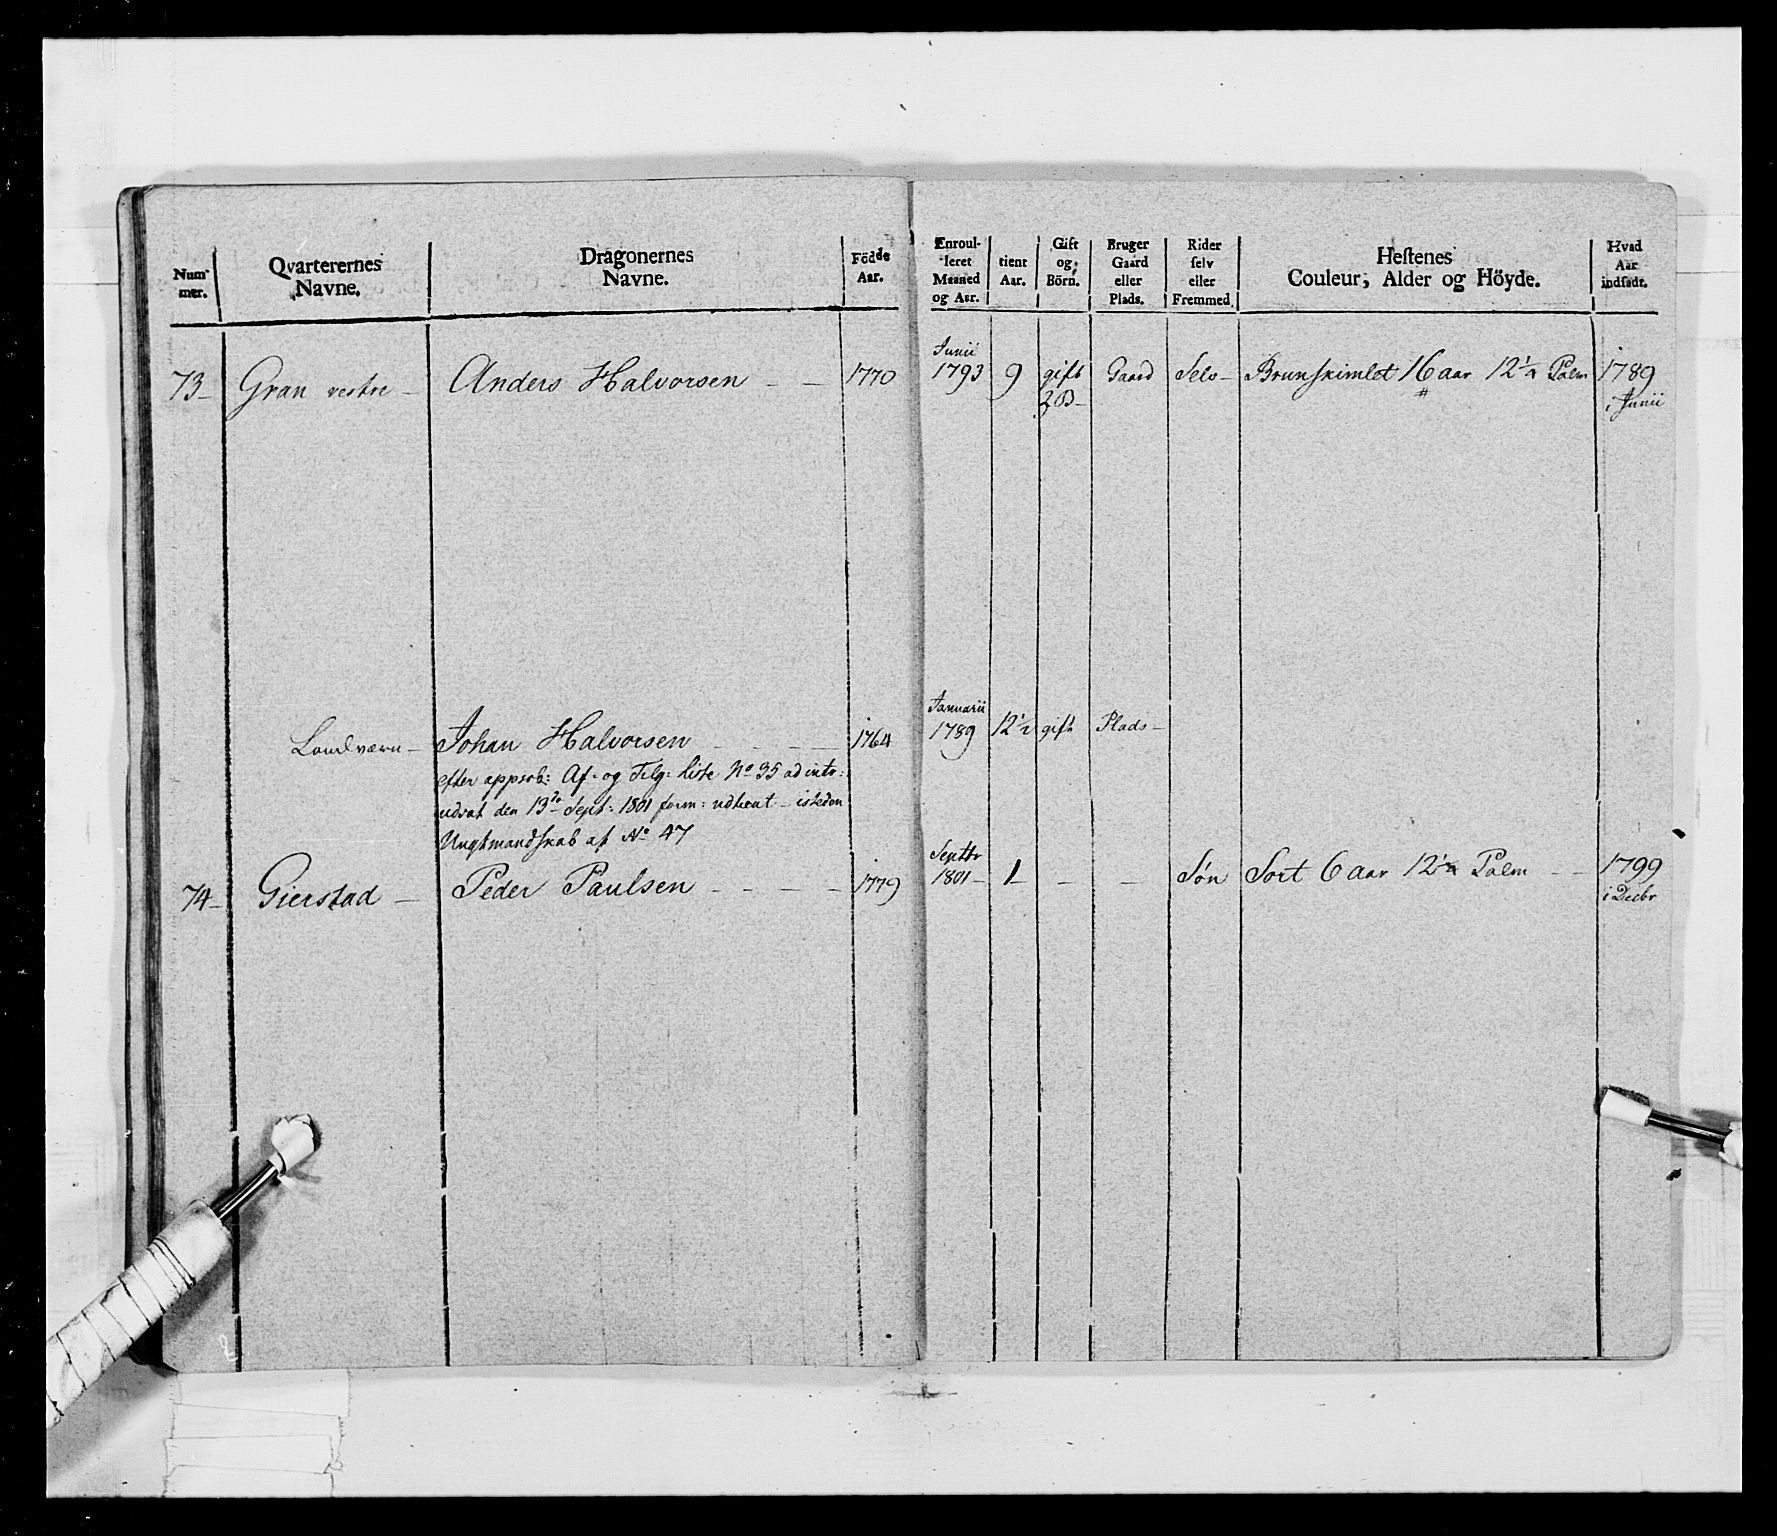 Num-
mer.
Qvarterernes
Navne.
Dragonernes
Navne.
Födde
Aar.
Enroul-
leret
Maaned
og Aar.
tient
Aar.
Gift
og
Börn.
Bruger
Gaard
eller
Plads.
Rider
selv
eller
Fremmed.
Hestenes
Couleur, Alder og Höyde.
Hvad
Aar
indsadt.
73- Gran vestre - Anders Halvorsen - - 1770 Junii 1793 9 gift 2 B- Gaard Selv- Brunskimlet 16 aar 12½ Palm 1789 i Junii
Landværn - Johan Halvorsen - - - - 1764 Januarii 1789 12½ gift Plads-
efter approb: Af- og Tilg: liste No 35 ad intr:
udsat den 13de Sept: 1801 form: udtient - isteden
Ungtmandskab af No 47
74- Gierstad - Peder Paulsen - - - - 1779 Septbr 1801- 1- - - Søn Sort 6 aar 12½ Palm - - 1799 i Decbr